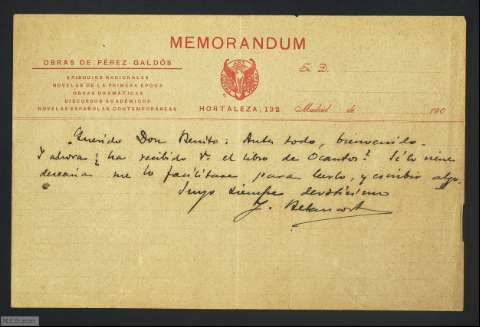 MEMORANDUM
OBRAS DE PÉREZ GALDÓS
EPISODIOS NACIONALES
NOVELAS DE LA PRIMERA ÉPOCA
OBRAS DRAMÁTICAS
DISCURSOS ACADÉMICOS
NOVELAS ESPAÑOLAS CONTEMPORÁNEAS
S. D.
HORTALEZA, 132
Madrid de 190
Querido Don Benito: Ante todo, bienvenido.
Y ahora ¿ha recibido Vd. el libro de Ocantos? Si lo tiene
desearía me lo facilitase para leerlo, y escribir algo.
Suyo siempre devotísimo
J. Betancort